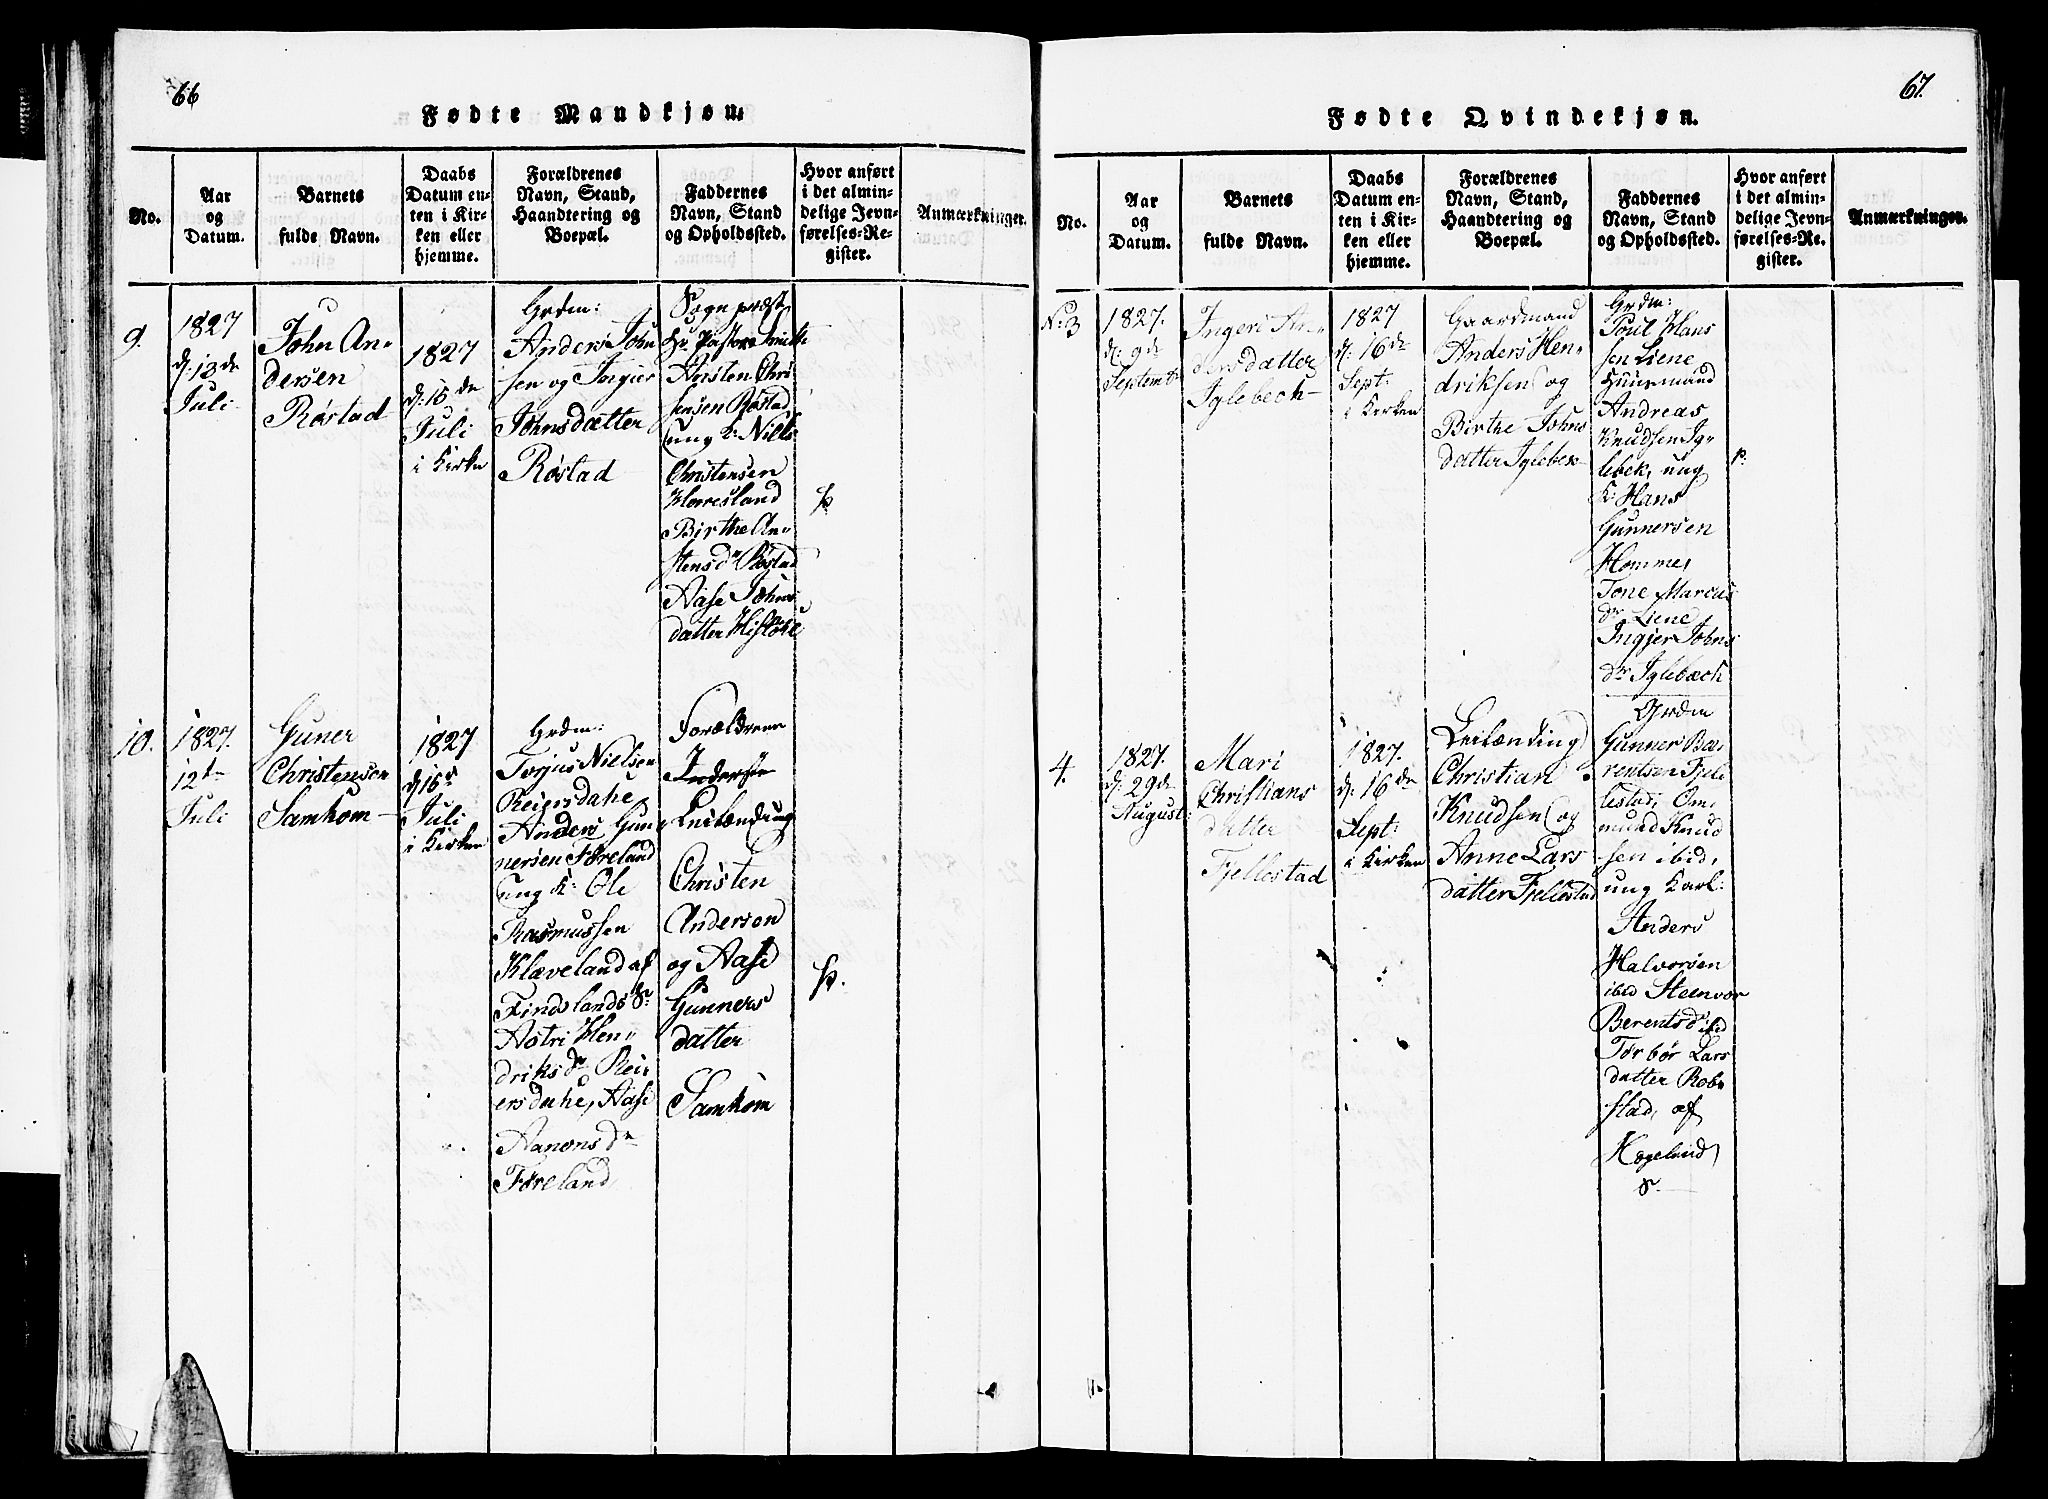 66
Fødte Mandkjøn.
No.
Aar
og
Datum.
Barnets
fulde Navn.
Daabs
Datum en-
ten i Kir-
ken eller
hjemme.
Forældrenes
Navn, Stand,
Haandtering og
Boepæl.
Faddernes
Navn, Stand
og Opholdssted.
Hvor anført
i det almin-
delige Jevn-
førelses-Re-
gister.
Anmærkninger.
9.
1827
d: 13de
Juli
John An-
dersen
Røstad
1827
d: 15de
Juli
i Kirke
Grdm:
Anders John
sen og Ingier
Johnsdatter
Røstad
Sognpræst
Hr Pastor Smith
Arsten Chri
stensen Røstad
ung k: Niels
Christensen
Haaresland
Birthe An-
stensdr Røstad
Aase Johns
datter
10.
1827.
12te
Juli
Guner
Christensen
Samkom
1827
d 15de
Juli
i Kirken
Grdm:
Torjus Nielsen
Reiersdahe
Anders Gun
nersen Føreland
ung K: Ole
Rasmussen
Klæveland af
Findslands S:
Astri Hen-
driksdr Rei
ersdahe, Aase
Aanonsdr
Føreland
Forældrene
Inderste
Leilænding
Christen
Anderson
og Aase
Gunners
datter
Samkom
67.
Fødte Qvindekjøn.
No.
Aar
og
Datum.
Barnets
fulde Navn.
Daabs
Datum en-
ten i Kir-
ken eller
hjemme.
Forældrenes
Navn, Stand,
Haandtering og
Boepæl.
Faddernes
Navn, Stand
og Opholdssted.
Hvor anført
i det almin-
delige Jevn-
førelses-Re-
gister.
Anmærkninger.
No: 3
1827.
d: 9de
Septembr
Ingeri An-
dersdatter
Iglebech
1827
d: 16de
Sept:
i Kirken
Gaardmand
Anders Hen-
driksen og
Birthe Johns
datter Iglebek
Grdm:
Poul Hans
sen Liene
Huusmand
Andreas
Knudsen Ig-
lebek, ung
K: Hans
Gunnersen
Homme,
Tone Marcus
dr Liene
Ingjer Johns
dr Iglebæch
4.
1827.
d: 29de
August
Mari
Christians
datter
Fjellestad
1827.
d: 16de
Sept:
i Kirken
Leilænding
Christian
Knudsen og
Anne Lars
datter Fjellestad
Grdm
Gunner Be
rentsen Fjele
lestad, Om
mund Knud
sen ibid,
ung Karl:
Anders
Halvorsen
ibid Steenvor
Berentsdr ibid
Torbør Lars
datter Rob-
stad, af
Hægeland
S.